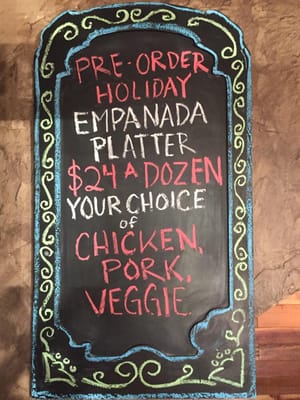 PRE-ORDER
HOLIDAY
EMPANADA
PLATTER
$24 A DOZEN
YOUR CHOICE
of
CHICKEN,
PORK,
VEGGIE